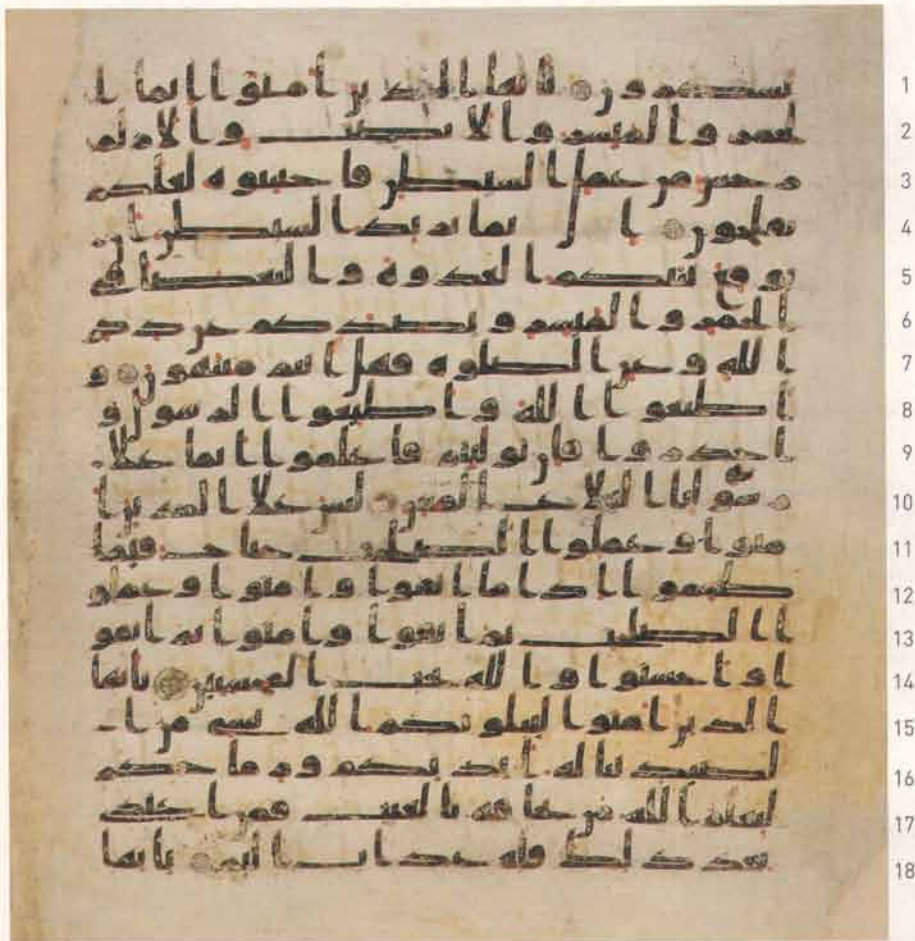 تشكرون يايها الذين امنوا انما ا 1
لخمر والميسر والانصب والازلم 2
رجس من عمل الشيطن فاجتنبوه لعلكم 3
تفلحون انما يريد الشيطن ان 4
يوقع بينكم العدوة والبغضا في 5
الخمر والميسر ويصدكم عن ذكر 6
الله وعن الصلوة فهل انتم منتهون و 7
اطيعوا الله واطيعوا الرسول و 8
احذروا فان توليتم فاعلموا انما علا 9
رسولنا البلاغ المبين ليس علا الذين ا 10
منوا وعملوا الصلحت جناح فيما 11
طعموا اذا ما اتقوا وامنوا وعملو 12
ا الصلحت ثم اتقوا وامنوا ثم اتقو 13
ا واحسنوا والله يحب المحسنين يايها 14
الذين امنوا ليبلونكم الله بشي من ا 15
لصيد تناله ايديكم ورماحكم 16
ليعلم الله من يخافه بالغيب فمن اعتدى 17
بعد ذلك فله عذاب اليم يايها 18